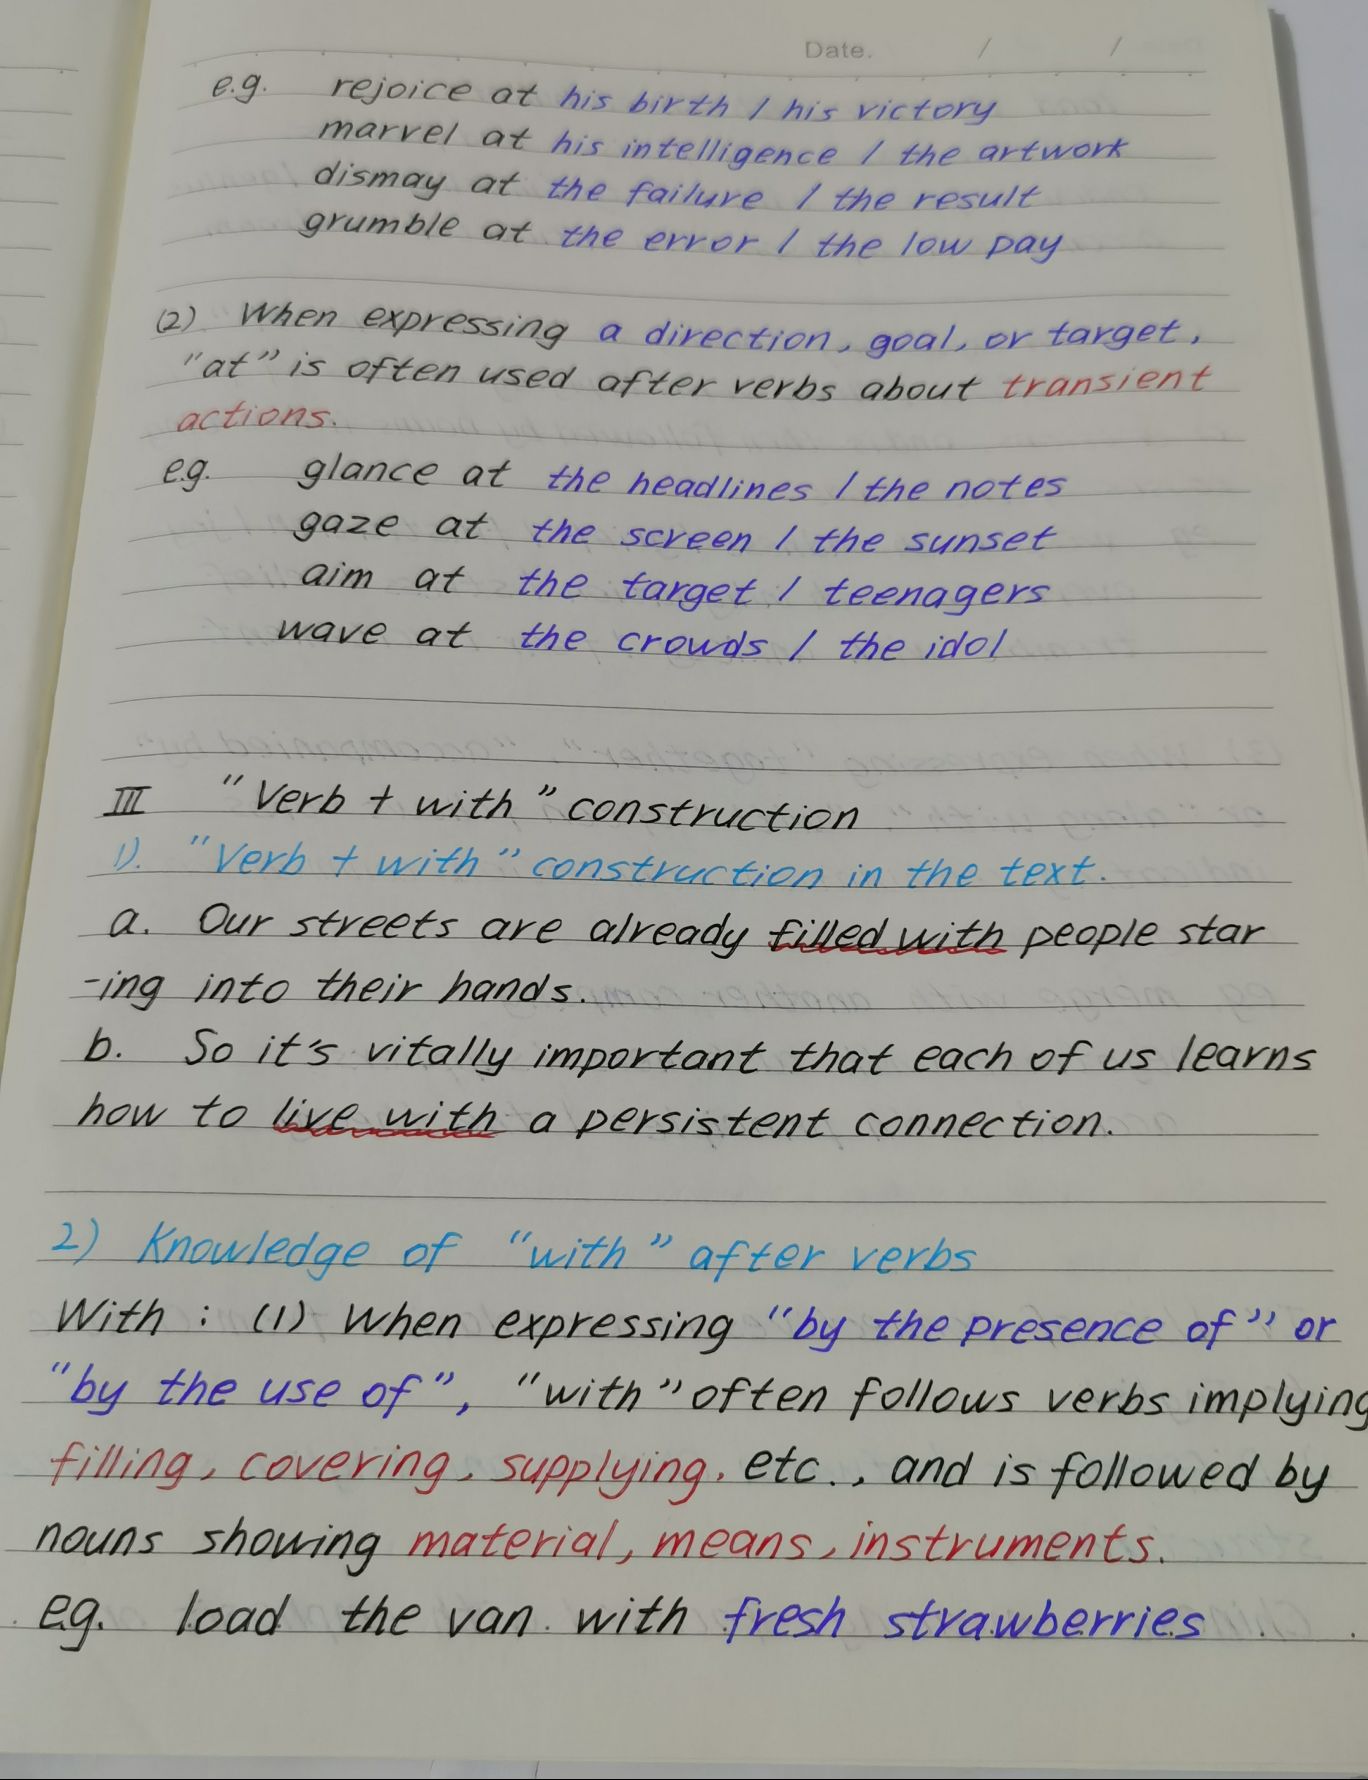 Date. / /
e.g. rejoice at his birth / his victory
marvel at his intelligence / the artwork
dismay at the failure / the result
grumble at the error / the low pay
(2) When expressing a direction, goal, or target,
"at" is often used after verbs about transient
actions.
e.g. glance at the headlines / the notes
gaze at the screen / the sunset
aim at the target / teenagers
wave at the crowds / the idol
III "Verb + with" construction
1). "Verb + with" construction in the text.
a. Our streets are already filled with people star
-ing into their hands.
b. So it's vitally important that each of us learns
how to live with a persistent connection.
2) Knowledge of "with" after verbs
With : (1) When expressing "by the presence of" or
"by the use of", "with" often follows verbs implying
filling, covering, supplying, etc., and is followed by
nouns showing material, means, instruments.
e.g. load the van with fresh strawberries